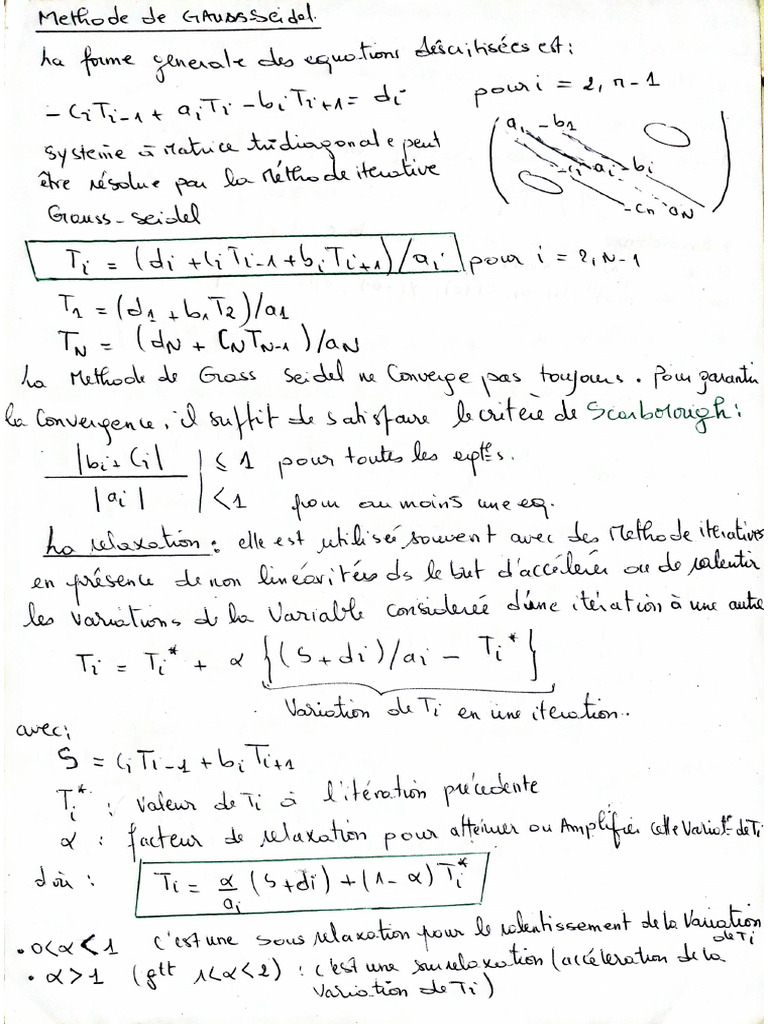 Methode de GAUSS Seidel.
La forme generale des equations déscritisées est :
-CiTi-1 + aiTi - biTi+1 = di pour i = 2, n-1
système à Matrice tridiagonale peut
être résolue par la Méthode iterative
Gauss-seidel
a1 -b1
-ci ai -bi
-cn aN
Ti = (di + CiTi-1 + biTi+1)/ai pour i = 2, N-1
T1 = (d1 + b1T2)/a1
TN = (dN + CNTN-1)/aN
La Methode de Grass Seidel ne Converge pas toujours. Pour garantir
la Convergence, il suffit de satisfaire le critère de Scarborough :
|bi + Ci| / |ai| | ≤ 1 pour toutes les eqtes.
| < 1 pour au moins une eq.
La relaxation : elle est utilisée souvent avec des Methode iteratives
en présence de non linéarités ds le but d'accélérér ou de ralentir
les variations de la Variable considereé d'une itération à une autre
Ti = Ti* + α {(S + di)/ai - Ti*}
Variation de Ti en une iteration.
avec;
S = CiTi-1 + biTi+1
Ti* : Valeur de Ti à l'itération précédente
α : facteur de relaxation pour attenuer ou Amplifier cette Variat° de Ti
d'où : Ti = α/ai (S + di) + (1 - α) Ti*
• 0<α<1 c'est une sous relaxation pour le ralentissement de la Variation de Ti
• α>1 (gtt 1<α<2) : c'est une surrelaxation (accéleration de la
Variation de Ti)